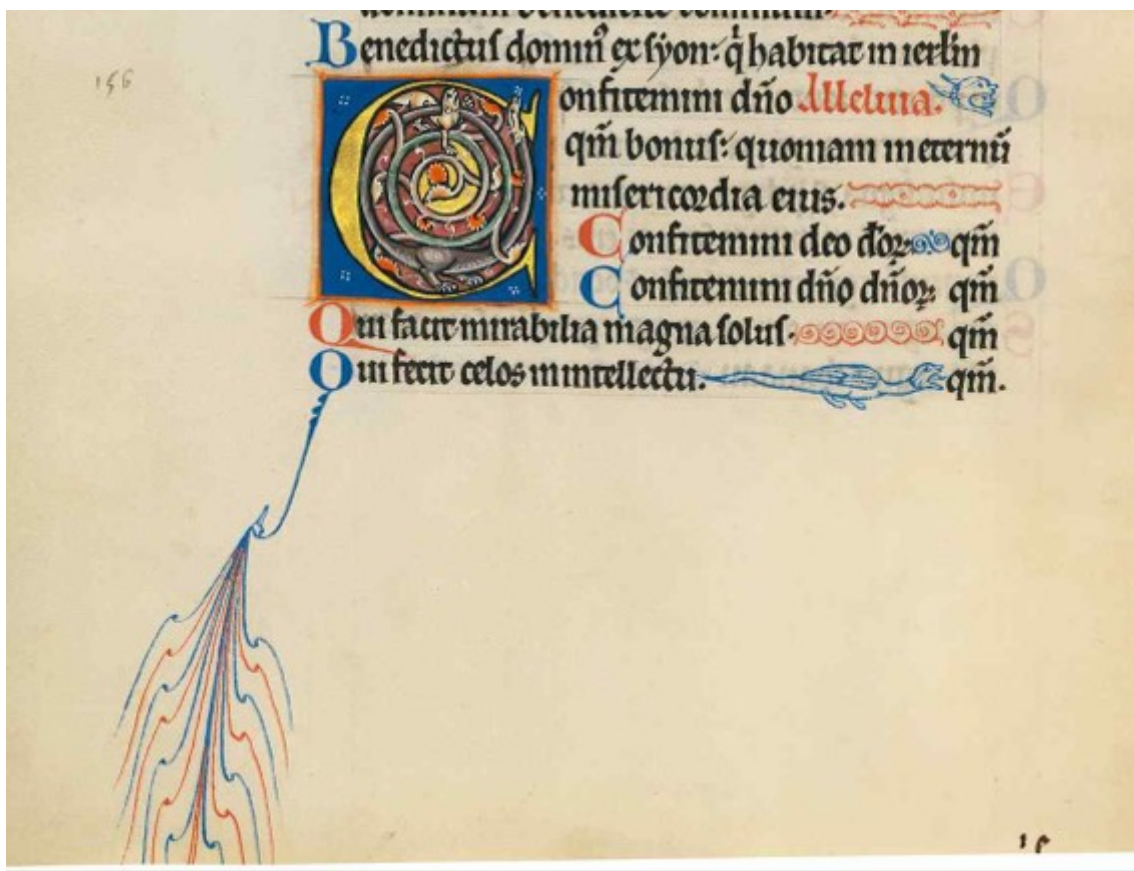 Benedictus domin᷒ ex syon: q̇ habitat in ierl̄m
156
Confitemini dn̄o Alleluia.
qm̄ bonus: quoniam in eternū
misericordia eius.
Confitemini deo d̄or qm̄
Confitemini dn̄o dn̄oꝝ: qm̄
Qui facit mirabilia magna solus. qm̄
Qui fecit celos in intellectu. qm̄.